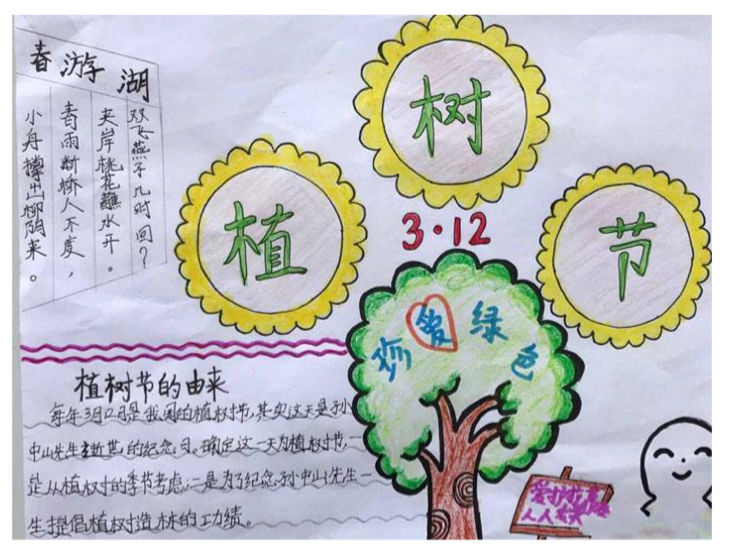 春游湖
双飞燕子几时回？
夹岸桃花蘸水开。
春雨断桥人不度，
小舟撑出柳阴来。
植树节
3·12
珍爱绿色
植树节的由来
每年3月12日是我国的植树节，其实这天是孙
中山先生逝世的纪念日。确定这一天为植树节，一
是从植树的季节考虑；二是为了纪念孙中山先生一
生提倡植树造林的功绩。
爱护
人人